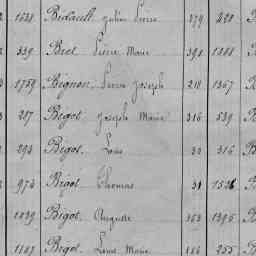 1538 Bidault, Julien Pierre 379 420
2 339 Biet Pierre Marie 391 1388
1759 Bignon, Pierre Joseph 211 1367
3 287 Bigot, Joseph Marie 316 539
294 Bigot, Louis 33 316
974 Bigot, Thomas 31
1039 Bigot, Auguste 363 1396
1107 Bigot, Louis Marie 186 255